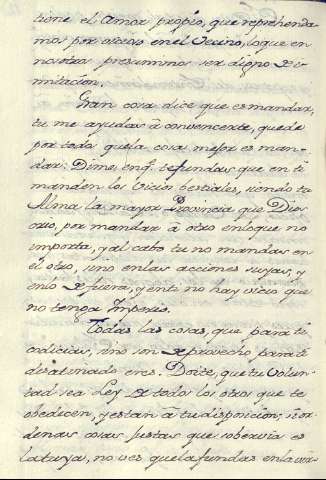 tiene el Amor propio, que reprehenda
mos por vicios en el Vecino, lo que en
nosotros presumimos ser digno de y
mitacion.
Gran cosa dice que es mandar,
tu me ayudas â convencerte, quede
por todo que la cosa mejor es man
dar: Dime, en q. te fundas que en ti
manden los Vicios bestiales, siendo tu
Alma la mayor Provincia que Dios
crio, por mandar â otro en lo que no
importa, y al cabo tu no mandas en
el otro, sino en las acciones suyas, y
en lo de fuera, y en ti no hay vicio que
no tenga Imperio.
Todas las cosas, que para ti
codicias, sino son de provecho para ti
desatinado eres. Doite, que tu Volun-
tad sea Ley de todos los otros que te
obedecen, y están â tu disposicion; si or
denas cosas justas que sobervia es
la tuya, no ves que la fundas en la vir-